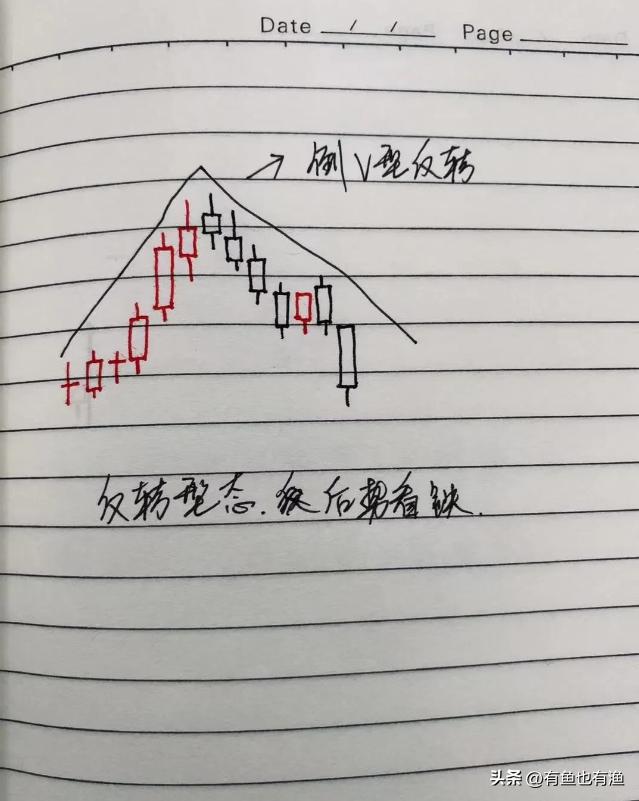 Date / / Page
倒V型反转
反转型态.后势看跌.
头条 @有鱼也有渔